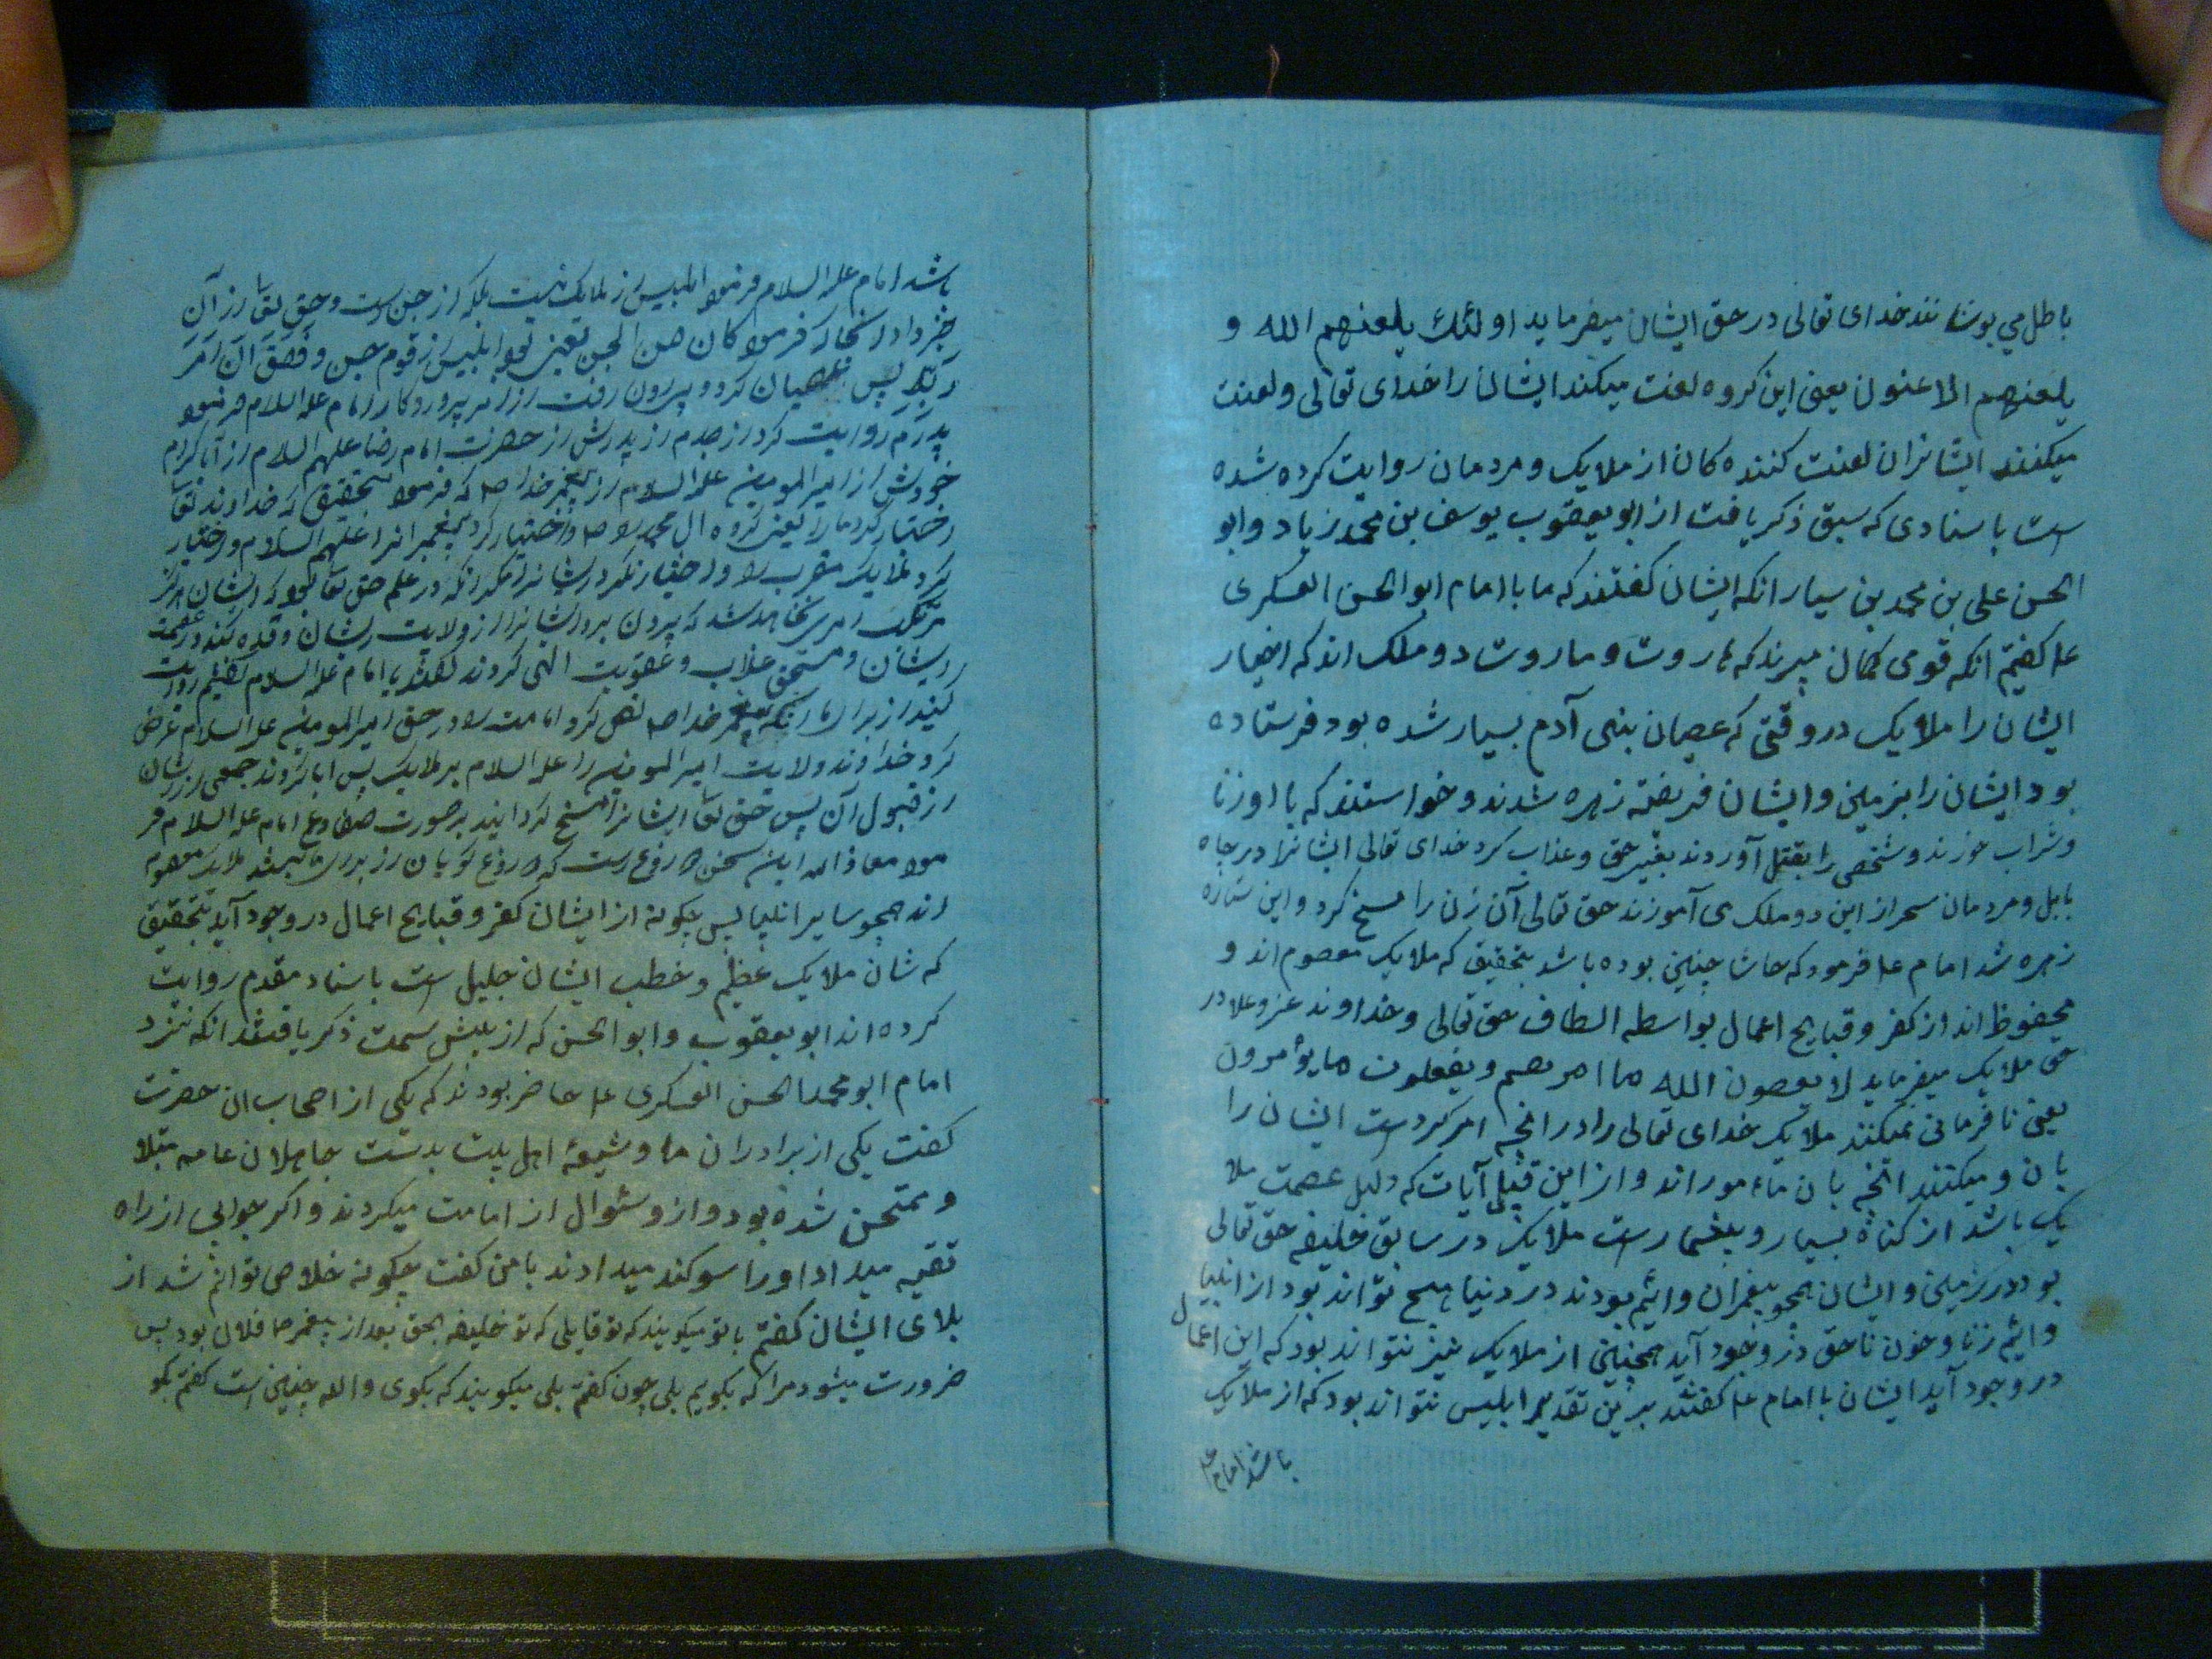 باطل می پوشانند خدای تعالی در حق ایشان میفرماید اولئك یلعنهم الله و
یلعنهم الاعنون یعنی این کروه لعنت میکند ایشان را خدای تعالی و لعنت
میکنند ایشانرا لعنت کننده کان از ملایک و مردمان روایت کرده شده
است باسنادی که سبق ذکر یافت از ابو یعقوب یوسف بن محمد زیاد و ابو
الحسن علی بن محمد بن سیار انکه ایشان کفتند که ما با امام ابو الحسن العسکری
ع کفتیم انکه قومی کمان میبرند که هاروت و ماروت دو ملک اند که اختیار
ایشان را ملایک در وقتی که عصیان بنی آدم بسیار شده بود فرستاده
بود ایشان را بزمین و ایشان فریفته زهره شدند و خواستند که با او زنا
و شراب خورند و شخصی را بقتل آوردند بغیر حق و عذاب کرد خدای تعالی ایشانرا در چاه
بابل و مردمان سحر از این دو ملک می آموزند حق تعالی آن زن را مسخ کرد و این ستاره
زهره شد امام ع فرمود که حاشا چنین بوده باشد بتحقیق که ملایک معصوم اند و
محفوظ اند از کفر و قبایح اعمال بواسطه الطاف حق تعالی و خداوند عز و علا در
حق ملایک میفرماید لا یعصون الله ما امرهم و یفعلون ما یؤمرون
یعنی نافرمانی نمیکنند ملایک خدای تعالی را در انچه امر کرده است ایشان را
بان و میکنند انچه بان ماءمور اند و از این قبیل آیات که دلیل عصمت ملا
یک باشد از کتاب بسیار و بیشمار است ملایک در سابق خلیفه حق تعالی
بود در زمین و ایشان همچو پیغمبران و ائیم بودند در دنیا هیچ تواند بود از انبیا
و ائیم زنا و خون ناحق در وجود آید همچنین از ملایک نیز نتواند بود که این اعمال
در وجود آید ایشان با امام ع کفتند برین تقدیر ابلیس نتواند بود که از ملایک
باشد امام ع
باشد امام علیه السلام فرمود ابلیس از ملایک نیست بلکه از جن است و حق تعا از آن
خبر داد انجا که فرمود کان من الجن یعنی بود ابلیس از قوم جن و ففسق آن امر
ربه پس عصیان کرد و بیرون رفت از امر پروردکار امام علیه السلام فرمود
پدرم روایت کرد از جدم از پدرش از حضرت امام رضا علیهم السلام از آبا کرام
خودش از امیر المومنین علیه السلام از پیغمبر خدا ص که فرمود بتحقیق که خداوند تعا
اختیار کرد ما را یعنی کروه ال محمد را ص و اختیار کرد پیغمبرانرا علیهم السلام و اختیار
کرد ملایک مقرب را و اختیار نکرد ایشانرا مکر انکه در علم حق تعا بود که ایشان هرکز
مرتکب امری نخاهد شد که بیرون برد ایشانرا از ولایت ایشان و قطع کند در عصمت
ایشان و مستحق عذاب و عقوبت الهی کردند کفتند با امام علیه السلام
کنند از برای ما انکه پیغمبر خدا ص نص کرد امامت را در حق امیر المومنین علیه السلام عرض
کرد خداوند ولایت امیر المومنین را علیه السلام بر ملایک پس ابا کردند جمعی از ایشان
از قبول آن پس حق تعا ایشانرا مسخ کردانید بر صورت ضفادع امام علیه السلام فر
مود معاذ الله این سخن دروغ است که دروغ کویان از
اند همچو سایر انبیا پس چکونه از ایشان کفر و قبایح اعمال در وجود آید بتحقیق
که شان ملایک عظیم و خطب ایشان جلیل است باسناد مقدم روایت
کرده اند ابو یعقوب و ابو الحسن که از پیش سمت ذکر یافتند انکه نزد
امام ابو محمد الحسن العسکری ع حاضر بودند که یکی از اصحاب ان حضرت
کفت یکی از برادران ما و شیعهٔ اهل بیت بدست جاهلان عامه مبتلا
و ممتحن شده بود و از و سئوال از امامت میکردند و اکر جوابی از راه
تقیه میداد او را سوکند میدادند با من کفت چکونه خلاصی توانم شد از
بلای ایشان کفتم با تو میکویند که تو قایلی که تو خلیفه بحق بعد از پیغمبر ص فلان بود پس
ضرورت میشود مرا که بکویم بلی چون کفتم بلی میکویند که بکوی والله چنین است کفتم بکو